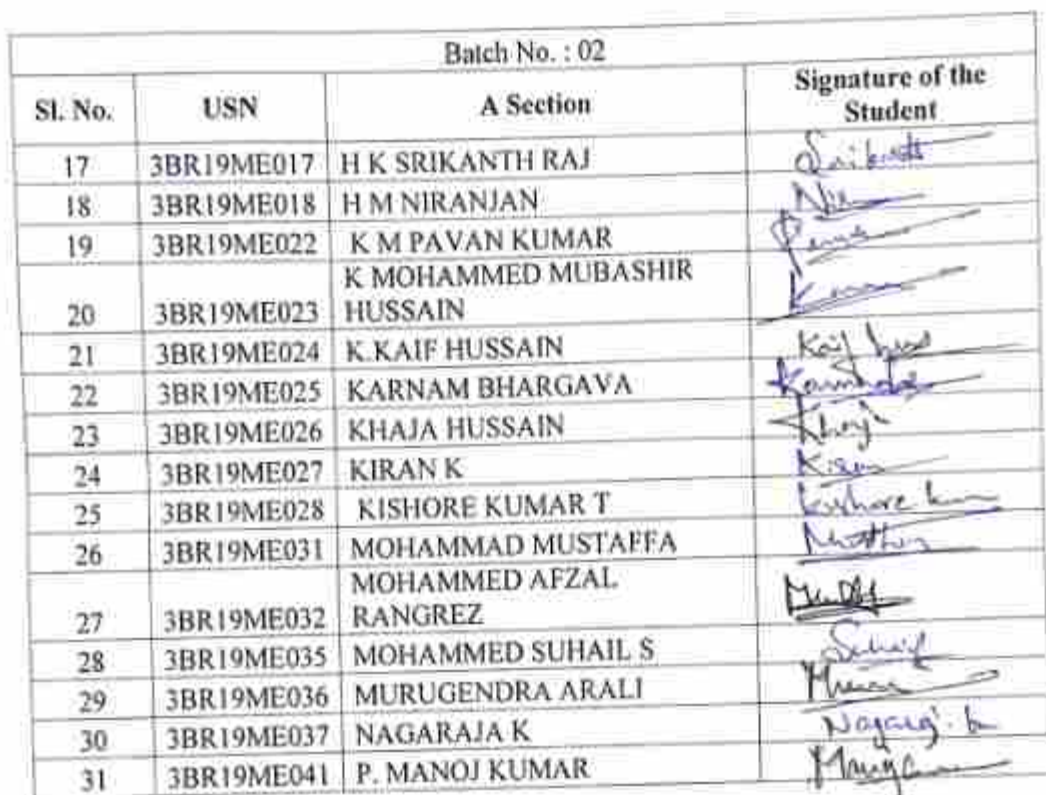 Batch No. : 02
Sl. No. USN A Section Signature of the Student
17 3BR19ME017 H K SRIKANTH RAJ
18 3BR19ME018 H M NIRANJAN
19 3BR19ME022 K M PAVAN KUMAR
20 3BR19ME023 K MOHAMMED MUBASHIR HUSSAIN
21 3BR19ME024 K.KAIF HUSSAIN Kaif
22 3BR19ME025 KARNAM BHARGAVA
23 3BR19ME026 KHAJA HUSSAIN
24 3BR19ME027 KIRAN K Kiran
25 3BR19ME028 KISHORE KUMAR T Kishore
26 3BR19ME031 MOHAMMAD MUSTAFFA
27 3BR19ME032 MOHAMMED AFZAL RANGREZ
28 3BR19ME035 MOHAMMED SUHAIL S Suhail
29 3BR19ME036 MURUGENDRA ARALI
30 3BR19ME037 NAGARAJA K
31 3BR19ME041 P. MANOJ KUMAR